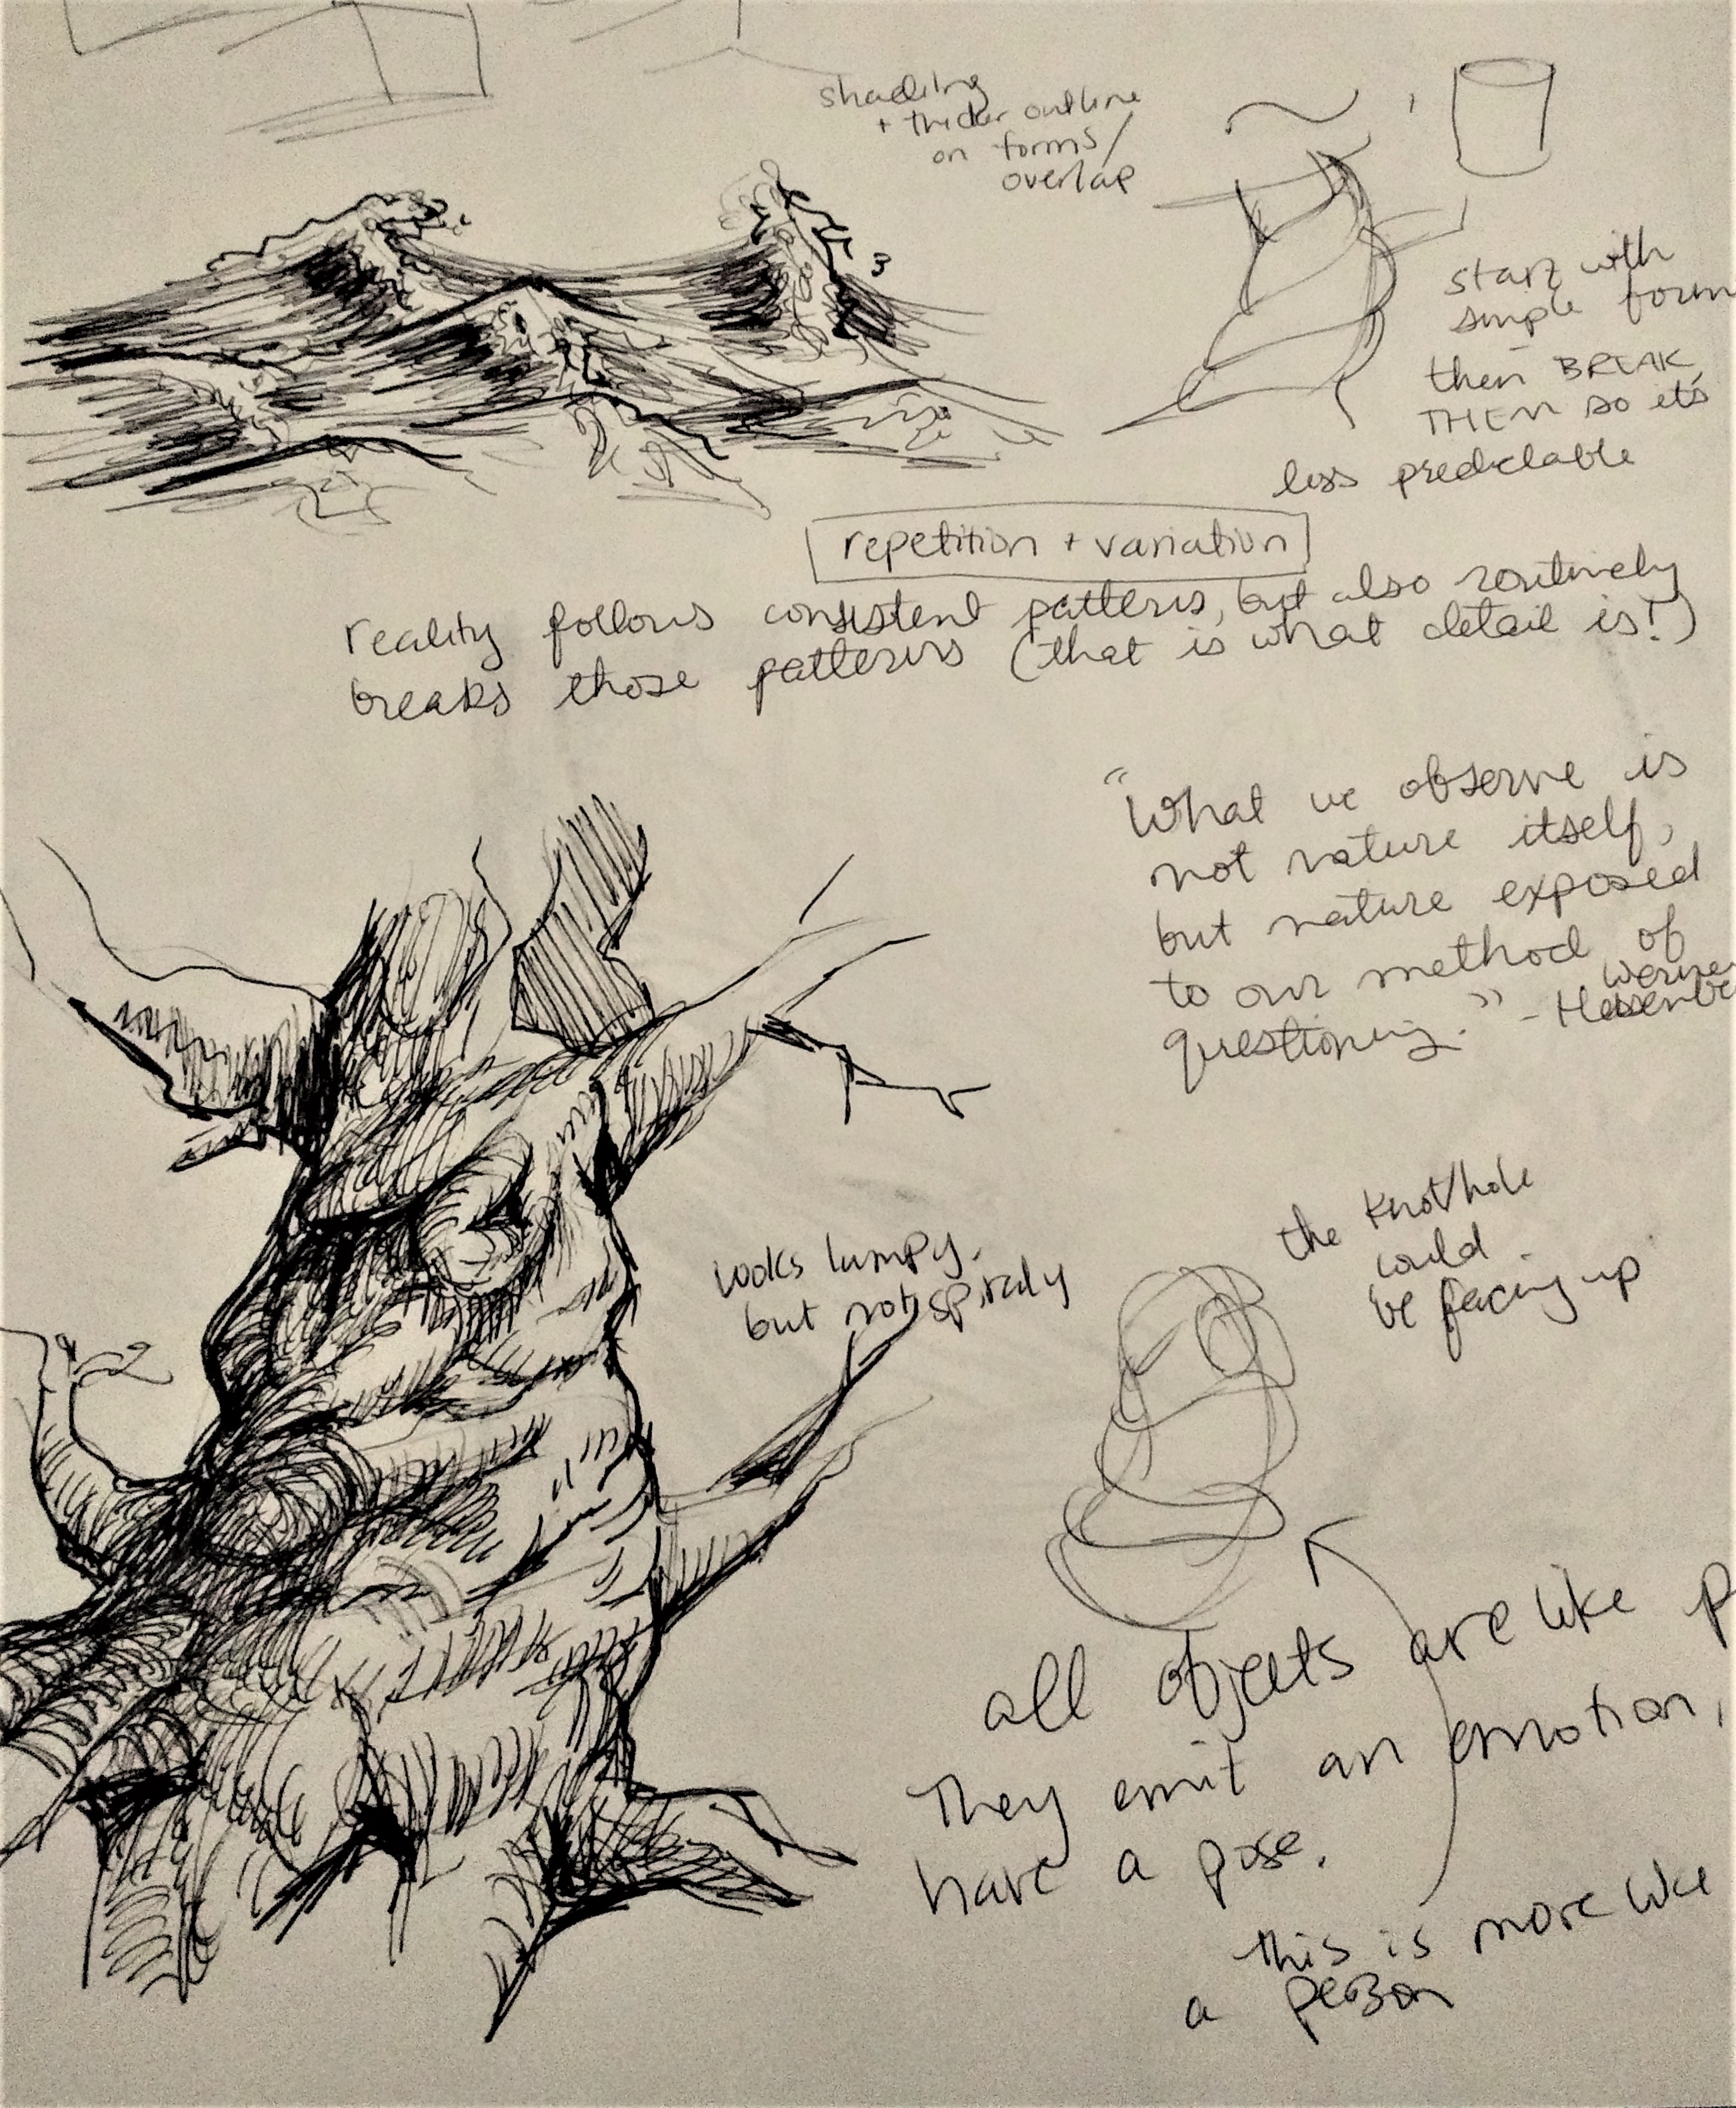 shading
+ thicker outline
on forms/
overlap
start with
simple form
then BREAK
THEM so it's
less predictable
repetition + variation
reality follows consistent patterns, but also routinely
breaks those patterns (that is what detail is!)
"What we observe is
not nature itself,
but nature exposed
to our method of
questioning." - Werner
Heisenbe
looks lumpy,
but not spiraly
the knot/hole
could
be facing up
all objects are like p
They emit an emotion,
have a pose.
this is more like
a person